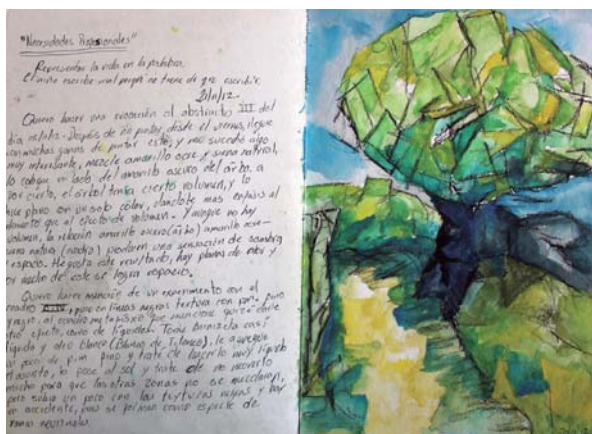 "Necesidades Profesionales"
Representar la vida en la palabra.
El niño escribe mal porque no tiene de que escribir.
21/11/12.-
Quiero hacer una evocación al abstracto III del
día .- Después de no pintar, desde el viernes, llegue
con muchas ganas de pintar este, y me sucedió algo
muy interesante, mezcle amarillo ocre y siena natural,
lo coloque un lado del amarillo oscuro del árbo. a
por cierto, el árbol tenía cierto volumen, y lo
hice plano con un solo color, dandole mas enfasis al
que al efecto de volumen.- Y aunque no hay
volumen, la relación amarillo oscuro (árbo) amarillo ocre-
siena natural producen una sensación de sombra
y espacio. Me gusta este resultado, hay planos de color y
por medio de este se logra espacio.
Quiero hacer mención de un experimento con el
cuadro , puse en líneas negras textura con pino
y negro, al cuadro que mencione quise darle
otro efecto, como de líquidos. Tome barniceta casi
líquida y oleo blanco (Blanco de Titanio), le agregue
un poco de pino y trate de hacerlo muy líquido
el asunto, lo puse al sol y trate de no moverlo
mucho para que las otras zonas no se mezclaran,
pero subio un poco con las texturas negras y hay
un accidente, pues se forman como especie de
zonas neuronales.